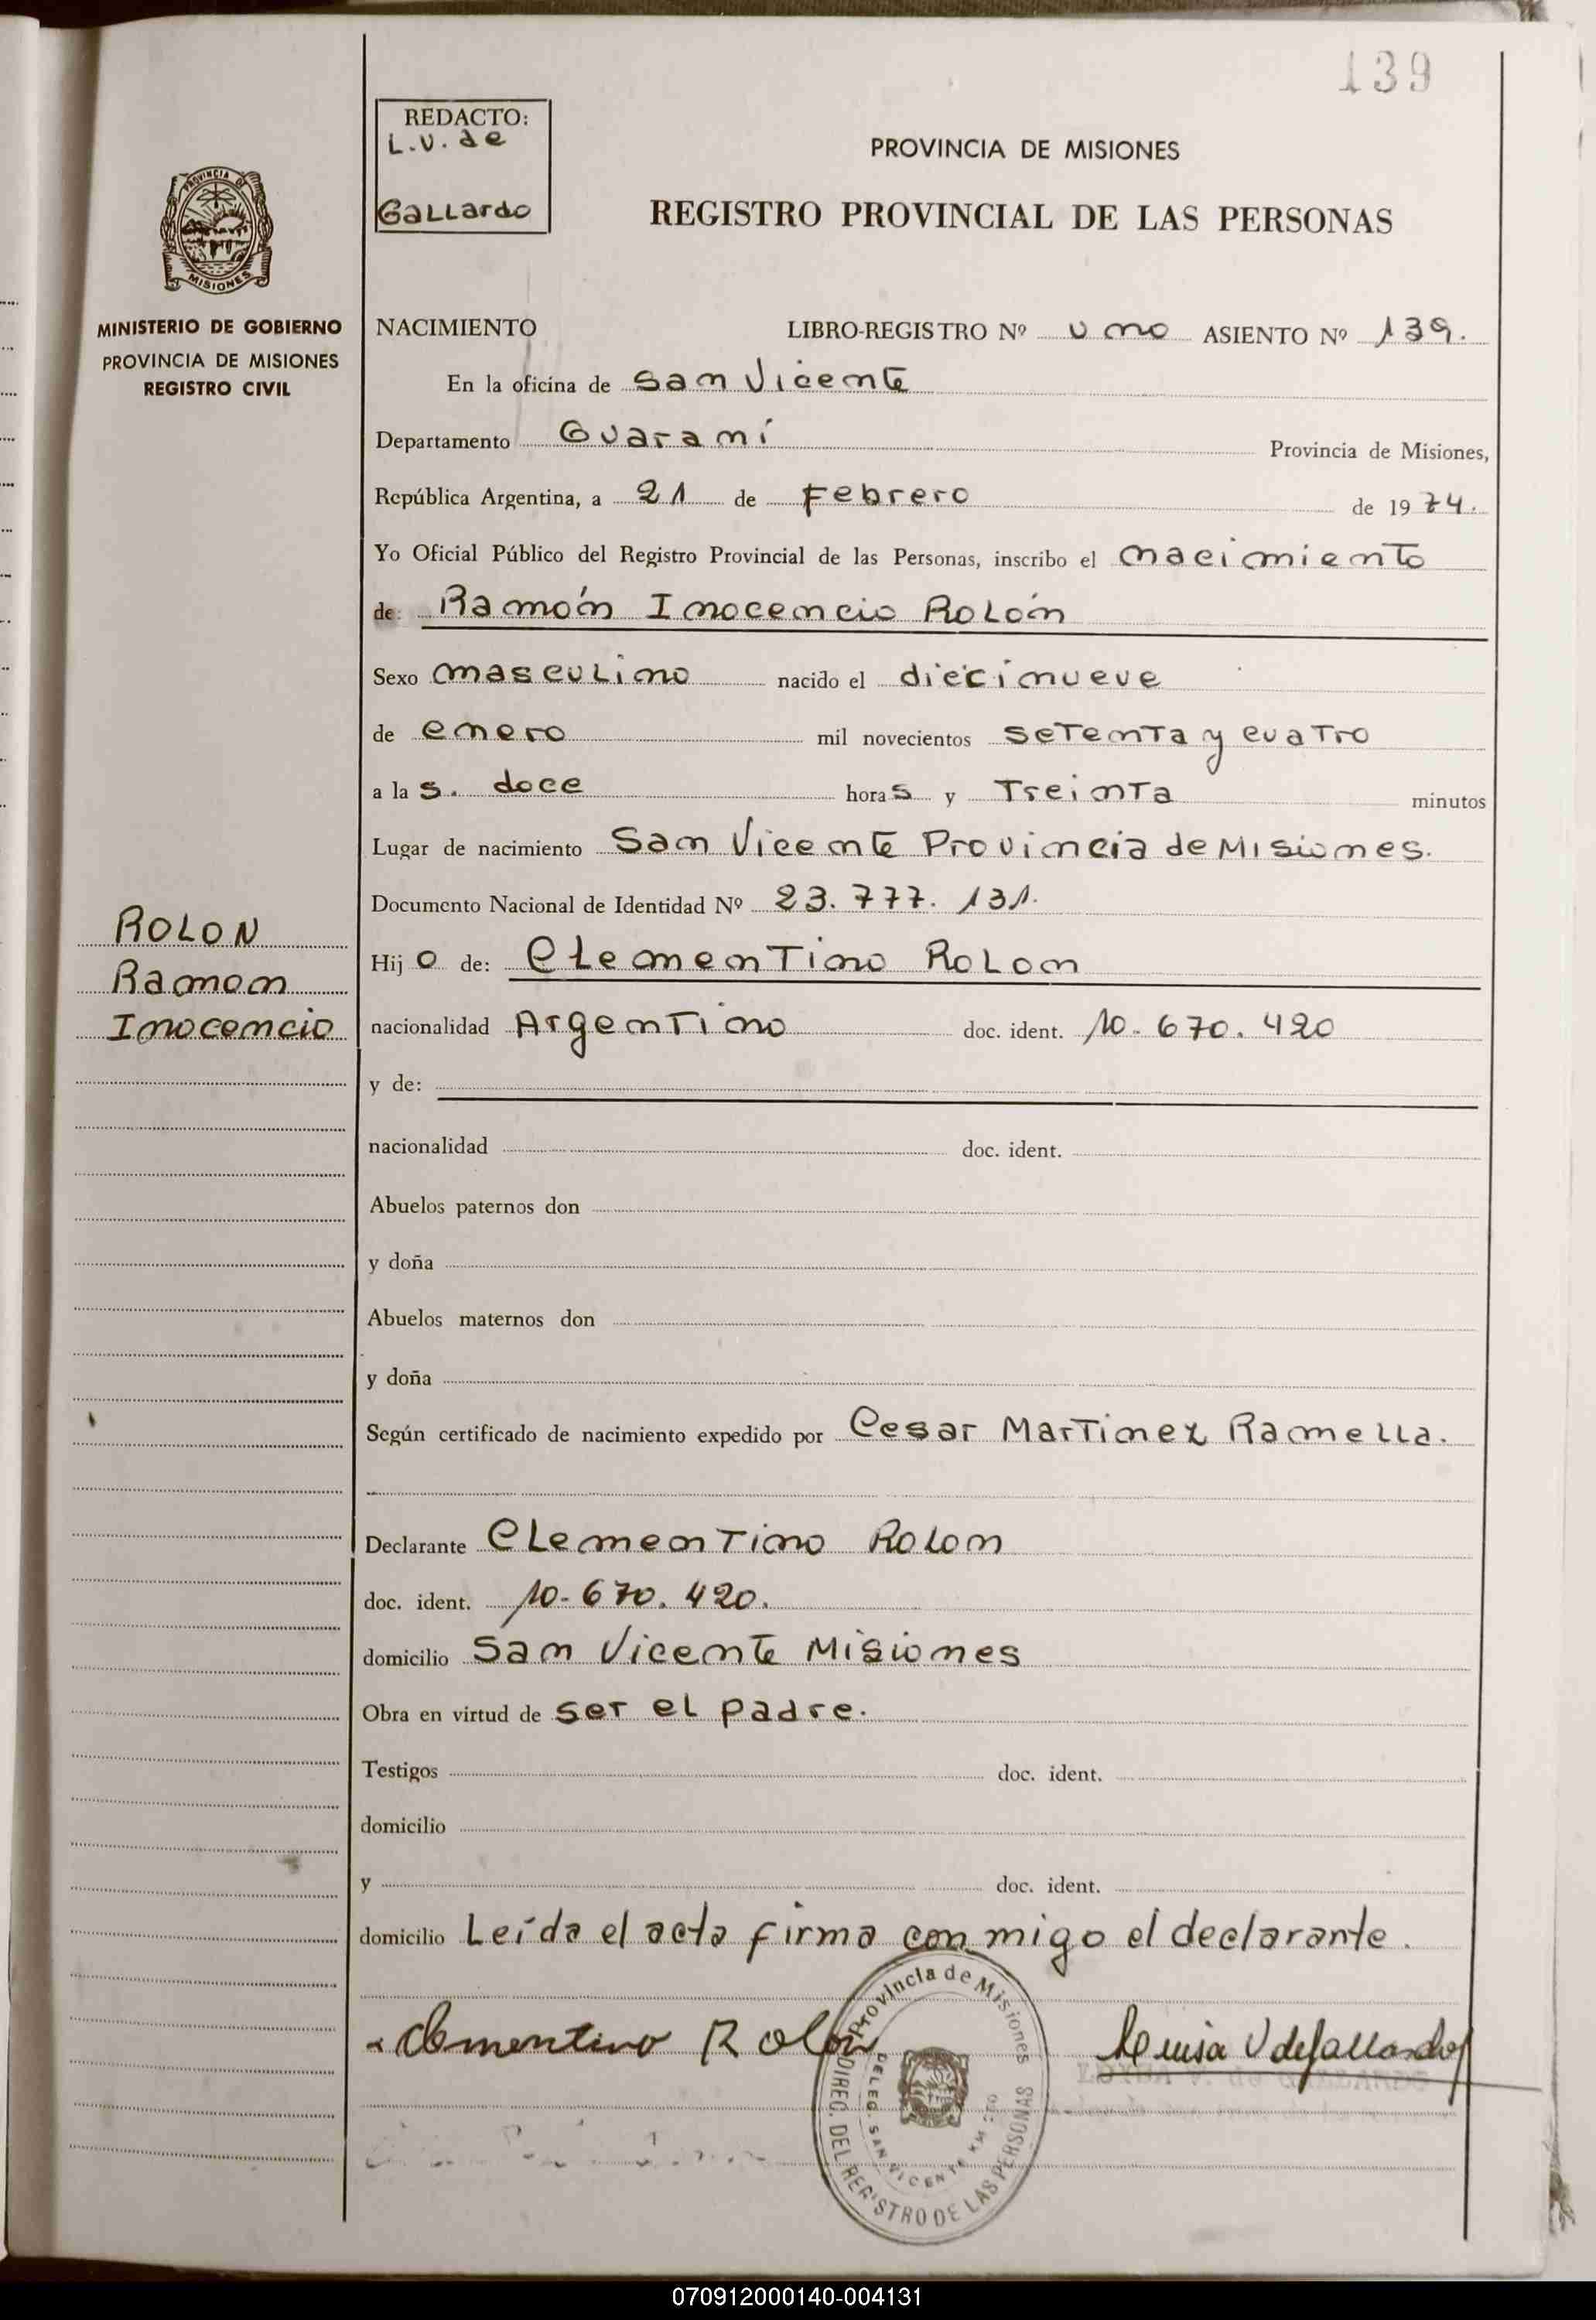 139
REDACTO:
L.V. de
Gallardo
PROVINCIA DE MISIONES
REGISTRO PROVINCIAL DE LAS PERSONAS
PROVINCIA DE
MISIONES
MINISTERIO DE GOBIERNO
PROVINCIA DE MISIONES
REGISTRO CIVIL
NACIMIENTO LIBRO-REGISTRO Nº uno ASIENTO Nº 139.
En la oficina de San Vicente
Departamento Guaraní Provincia de Misiones,
República Argentina, a 21 de Febrero de 1974.
Yo Oficial Público del Registro Provincial de las Personas, inscribo el nacimiento
de: Ramón Inocencio Rolón
Sexo masculino nacido el diecinueve
de enero mil novecientos setenta y cuatro
a las. doce horas y Treinta minutos
Lugar de nacimiento San Vicente Provincia de Misiones.
Documento Nacional de Identidad Nº 23.777.131.
ROLON
Ramon
Inocencio
Hijo de: Clementino Rolon
nacionalidad Argentino doc. ident. 10.670.420
y de:
nacionalidad doc. ident.
Abuelos paternos don
y doña
Abuelos maternos don
y doña
Según certificado de nacimiento expedido por Cesar Martinez Ramella.
Declarante Clementino Rolon
doc. ident. 10.670.420.
domicilio San Vicente Misiones
Obra en virtud de ser el padre.
Testigos doc. ident.
domicilio
y doc. ident.
domicilio Leída el acta firma con migo el declarante.
Clementino Rolon
Luisa V de Gallardo
Provincia de Misiones
DIREC. DEL REGISTRO DE LAS PERSONAS
DELEG. SAN VICENTE KM 270
070912000140-004131